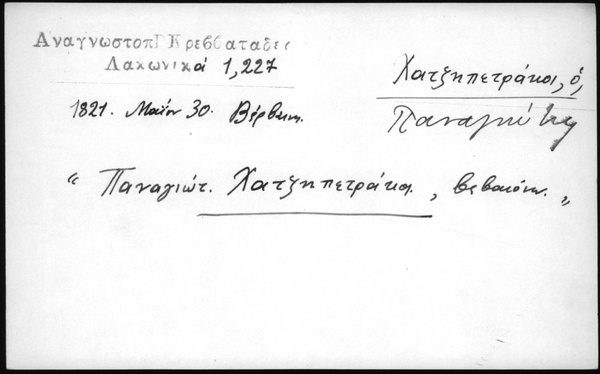 ΑναγνωστοπΓ Κρεββαταδες
Λακωνικά 1,227
Χατζηπετράκος, ὁ,
Παναγιώτης
1821. Μαΐου 30. Βέρβενα.
" Παναγιώτ. Χατζηπετράκος , βεβαιόνω. "